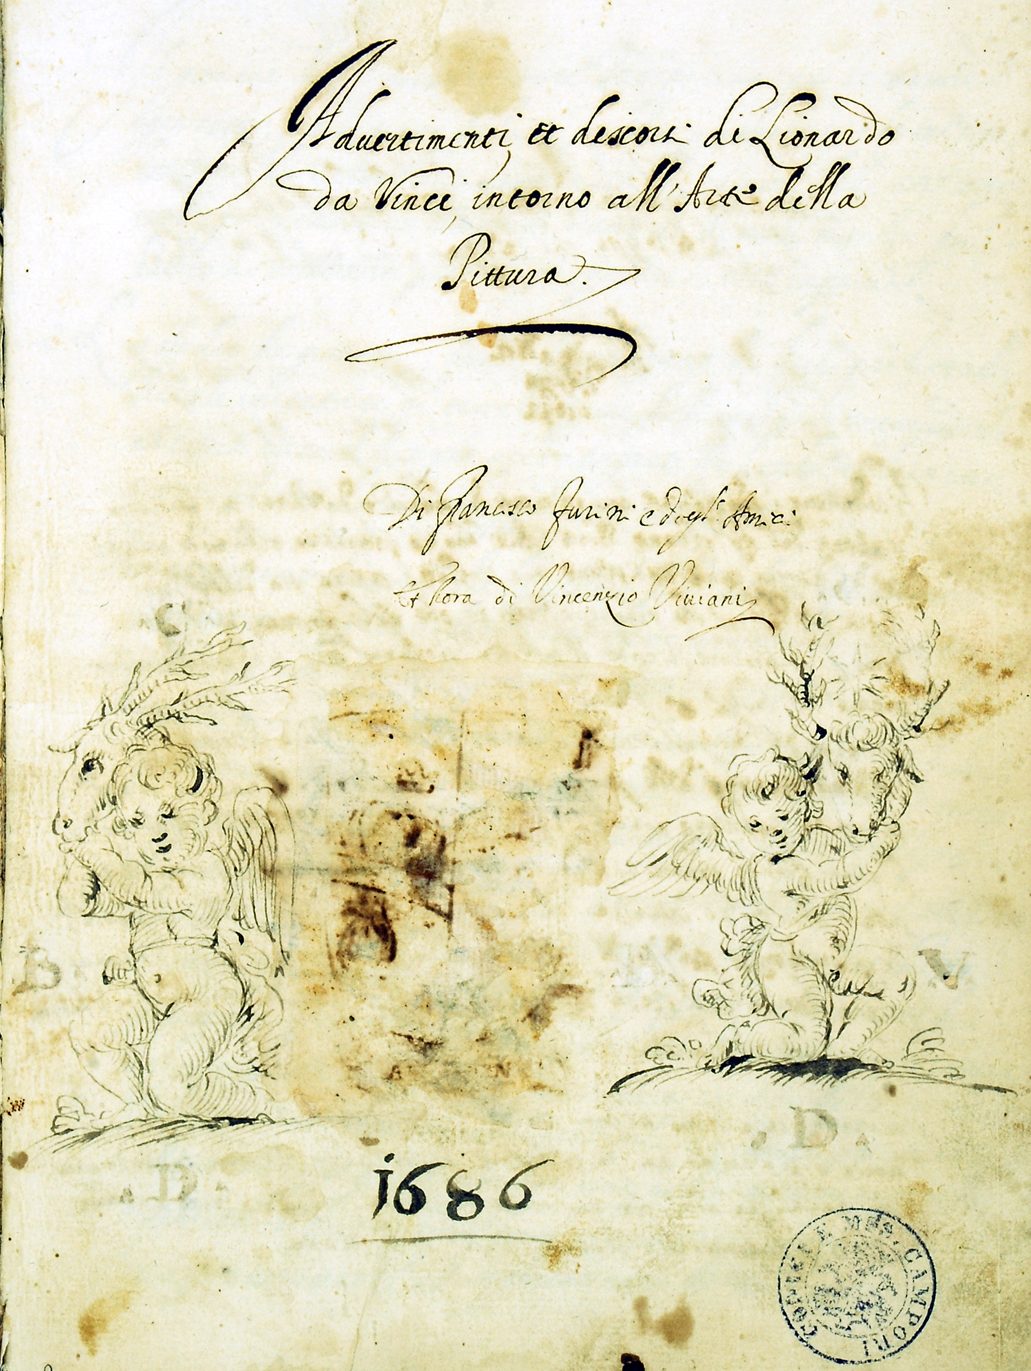 Advertimenti et descorsi di Lionardo
da Vinci intorno all'Arte della
Pittura.
Di Francesco Furini e degl' Amici
Et hora di Vincenzio Viuiani
B
V
D
1686
CODICI E MSS. CAMPORI